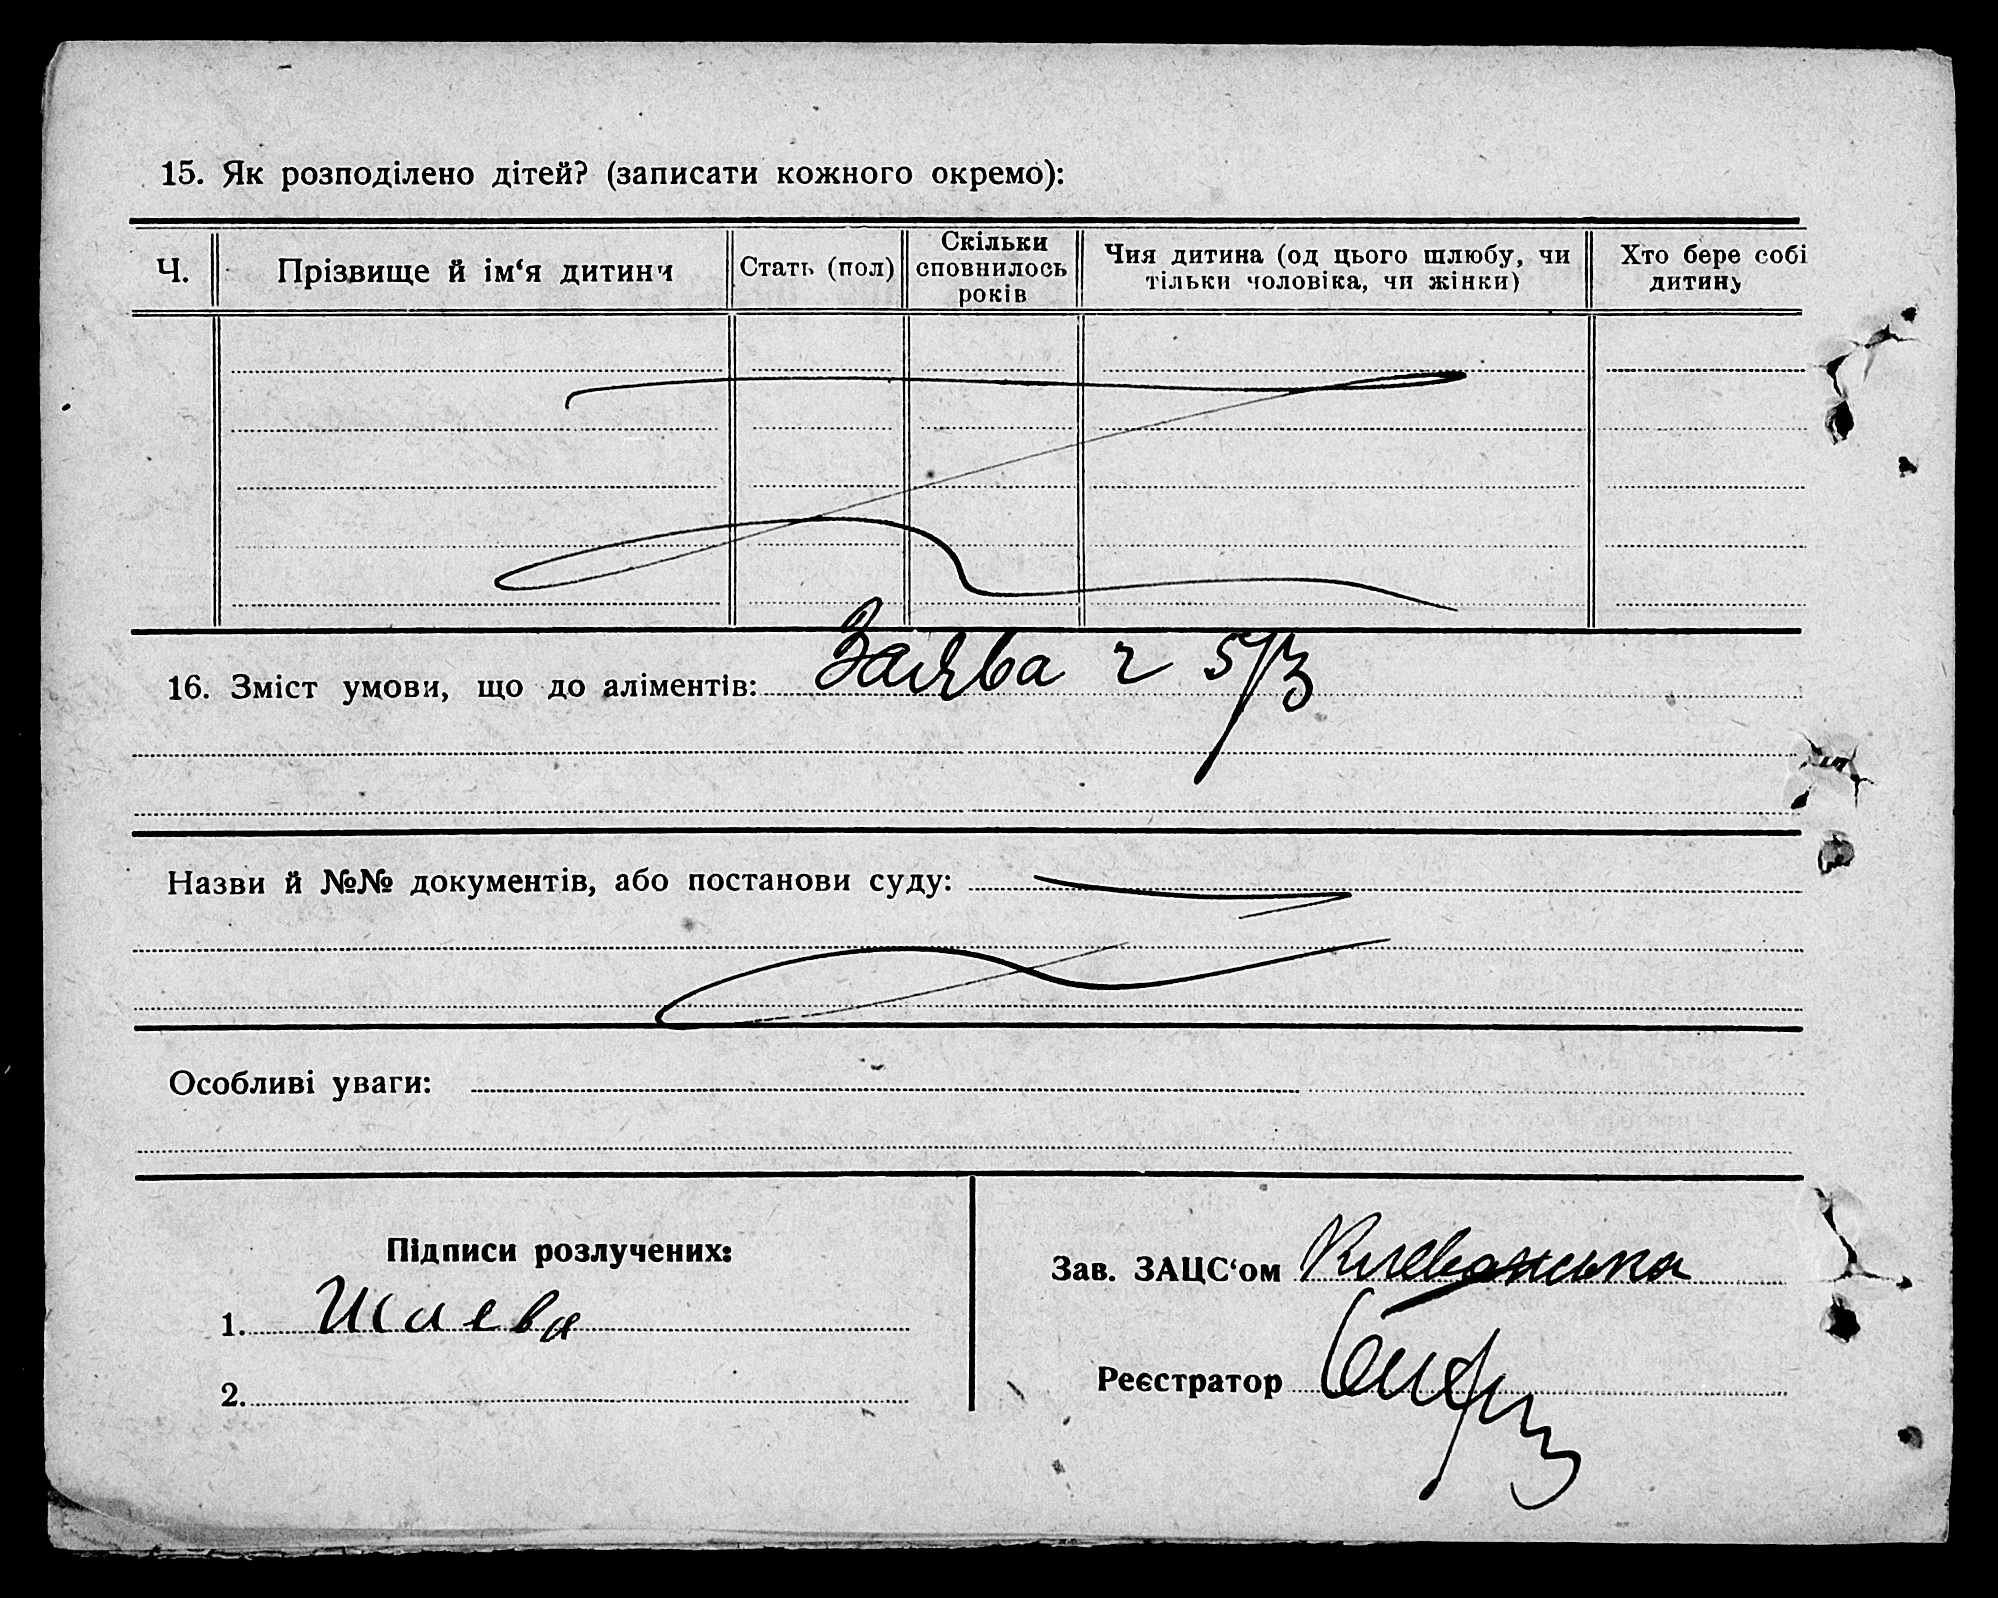 15. Як розподілено дітей? (записати кожного окремо):
Ч.
Прізвище й ім‘я дитини
Стать (пол)
Скільки
сповнилось
років
Чия дитина (од цього шлюбу, чи
тільки чоловіка, чи жінки)
Хто бере собі
дитину
16. Зміст умови, що до аліментів: Заява ч 5/3
Назви й №№ документів, або постанови суду:
Особливі уваги:
Підписи розлучених:
1. Шаева
2.
Зав. ЗАЦС‘ом Клеванська
Реєстратор